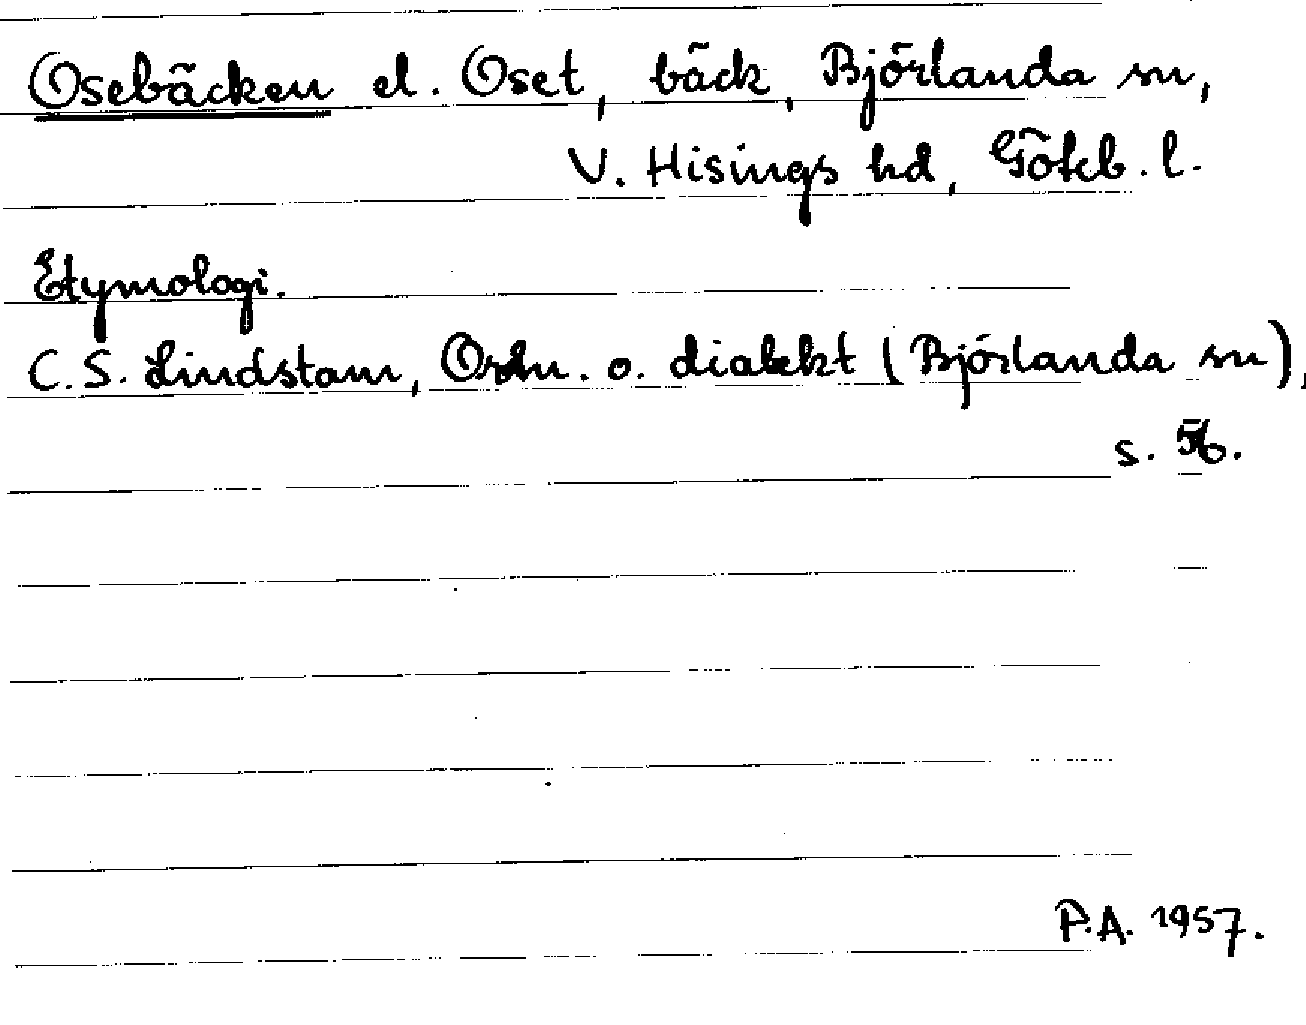 Osebäcken el. Oset, bäck, Björlanda sn,
V. Hisings hd, Göteb. l.
Etymologi.
C. S. Lindstam, Ortn. o. dialekt (Björlanda sn),
s. 56.
P.A. 1957.